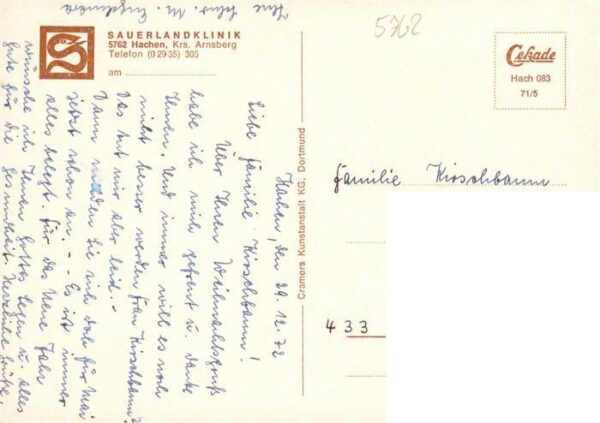 5762
SAUERLANDKLINIK
5762 Hachen, Krs. Arnsberg
Telefon (0 29 35) 305
am
Cekade
Hach 083
71/5
Cramers Kunstanstalt KG, Dortmund
Familie Kirschbaum
433
Hachen, den 29.12.72
Liebe Familie Kirschbaum!
Über Ihren Weihnachtsgruß
habe ich mich gefreut u. danke
Ihnen. Und immer will es noch
nicht besser werden Frau Kirschbaum?
Das tut mir aber leid. -
Dann melden Sie sich doch für Mai
jetzt schon an. - Es ist immer
alles belegt. Für das Neue Jahr
wünsche ich Ihnen Gottes Segen u. alles
Gute für die Gesundheit. Herzliche Grüße,
Ihre M.